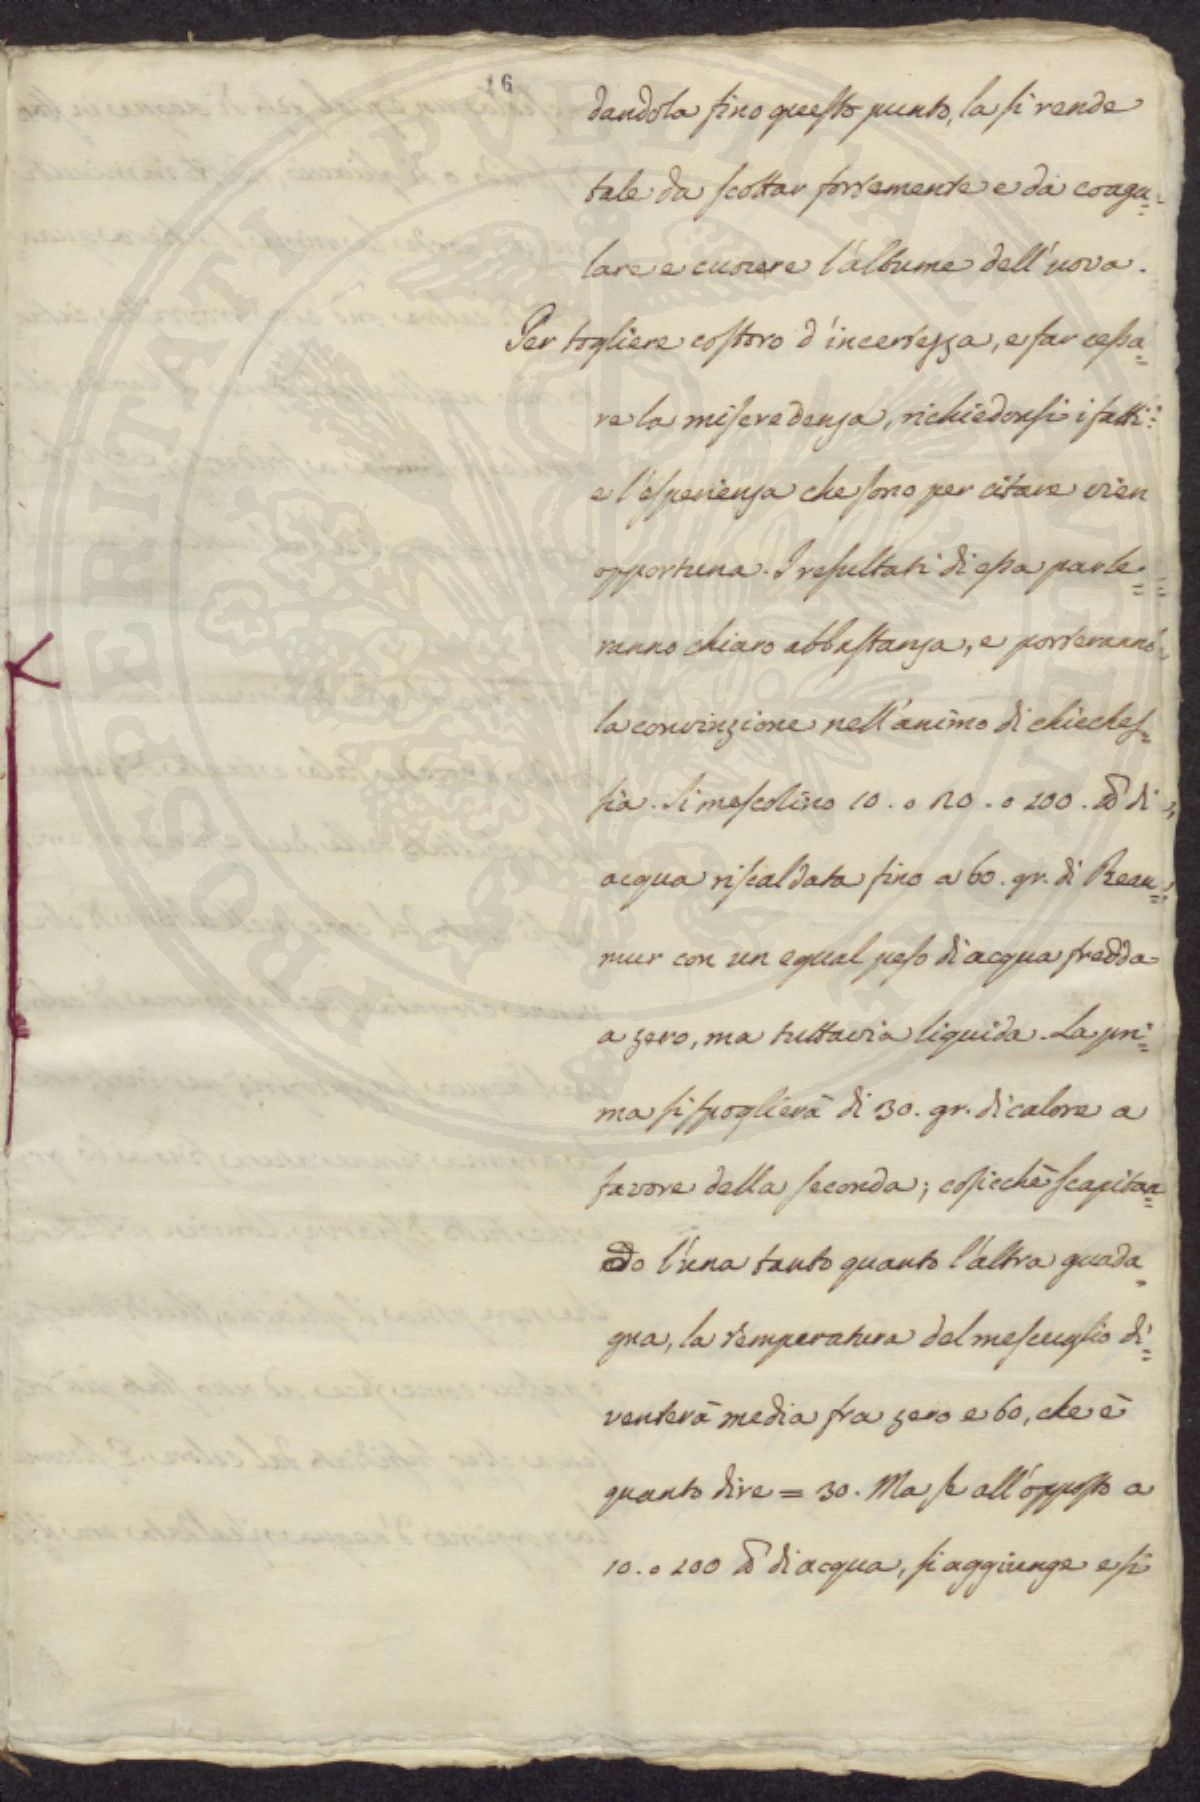 16
dandola fino questo punto, la si rende
tale da scottar fortemente e da coagu=
lare e cuocere l'albume dell'uova.
Per togliere costoro d'incertezza, e far cessa=
re la miscredenza, richiedonsi i fatti:
e l'esperienza che sono per citare vien
opportuna. I resultati di essa parle=
ranno chiaro abbastanza, e porteranno
la convinzione nell'animo di chiches=
sia. Si mescolino 10. o 20. o 100. ℔ di
acqua riscaldata fino a 60. gr. di Reau=
mur con un egual peso di acqua fredda
a zero, ma tuttavia liquida. La pri=
ma si spoglierà di 30. gr. di calore a
favore della seconda; cosicchè scapitan=
do l'una tanto quanto l'altra guada=
gna, la temperatura del mescuglio di=
venterà media fra zero e 60, che è
quanto dire = 30. Ma se all'opposto a
10. o 100 ℔ di acqua, si aggiunge e si
PROSPERITATI PUBLICAE AUGENDAE